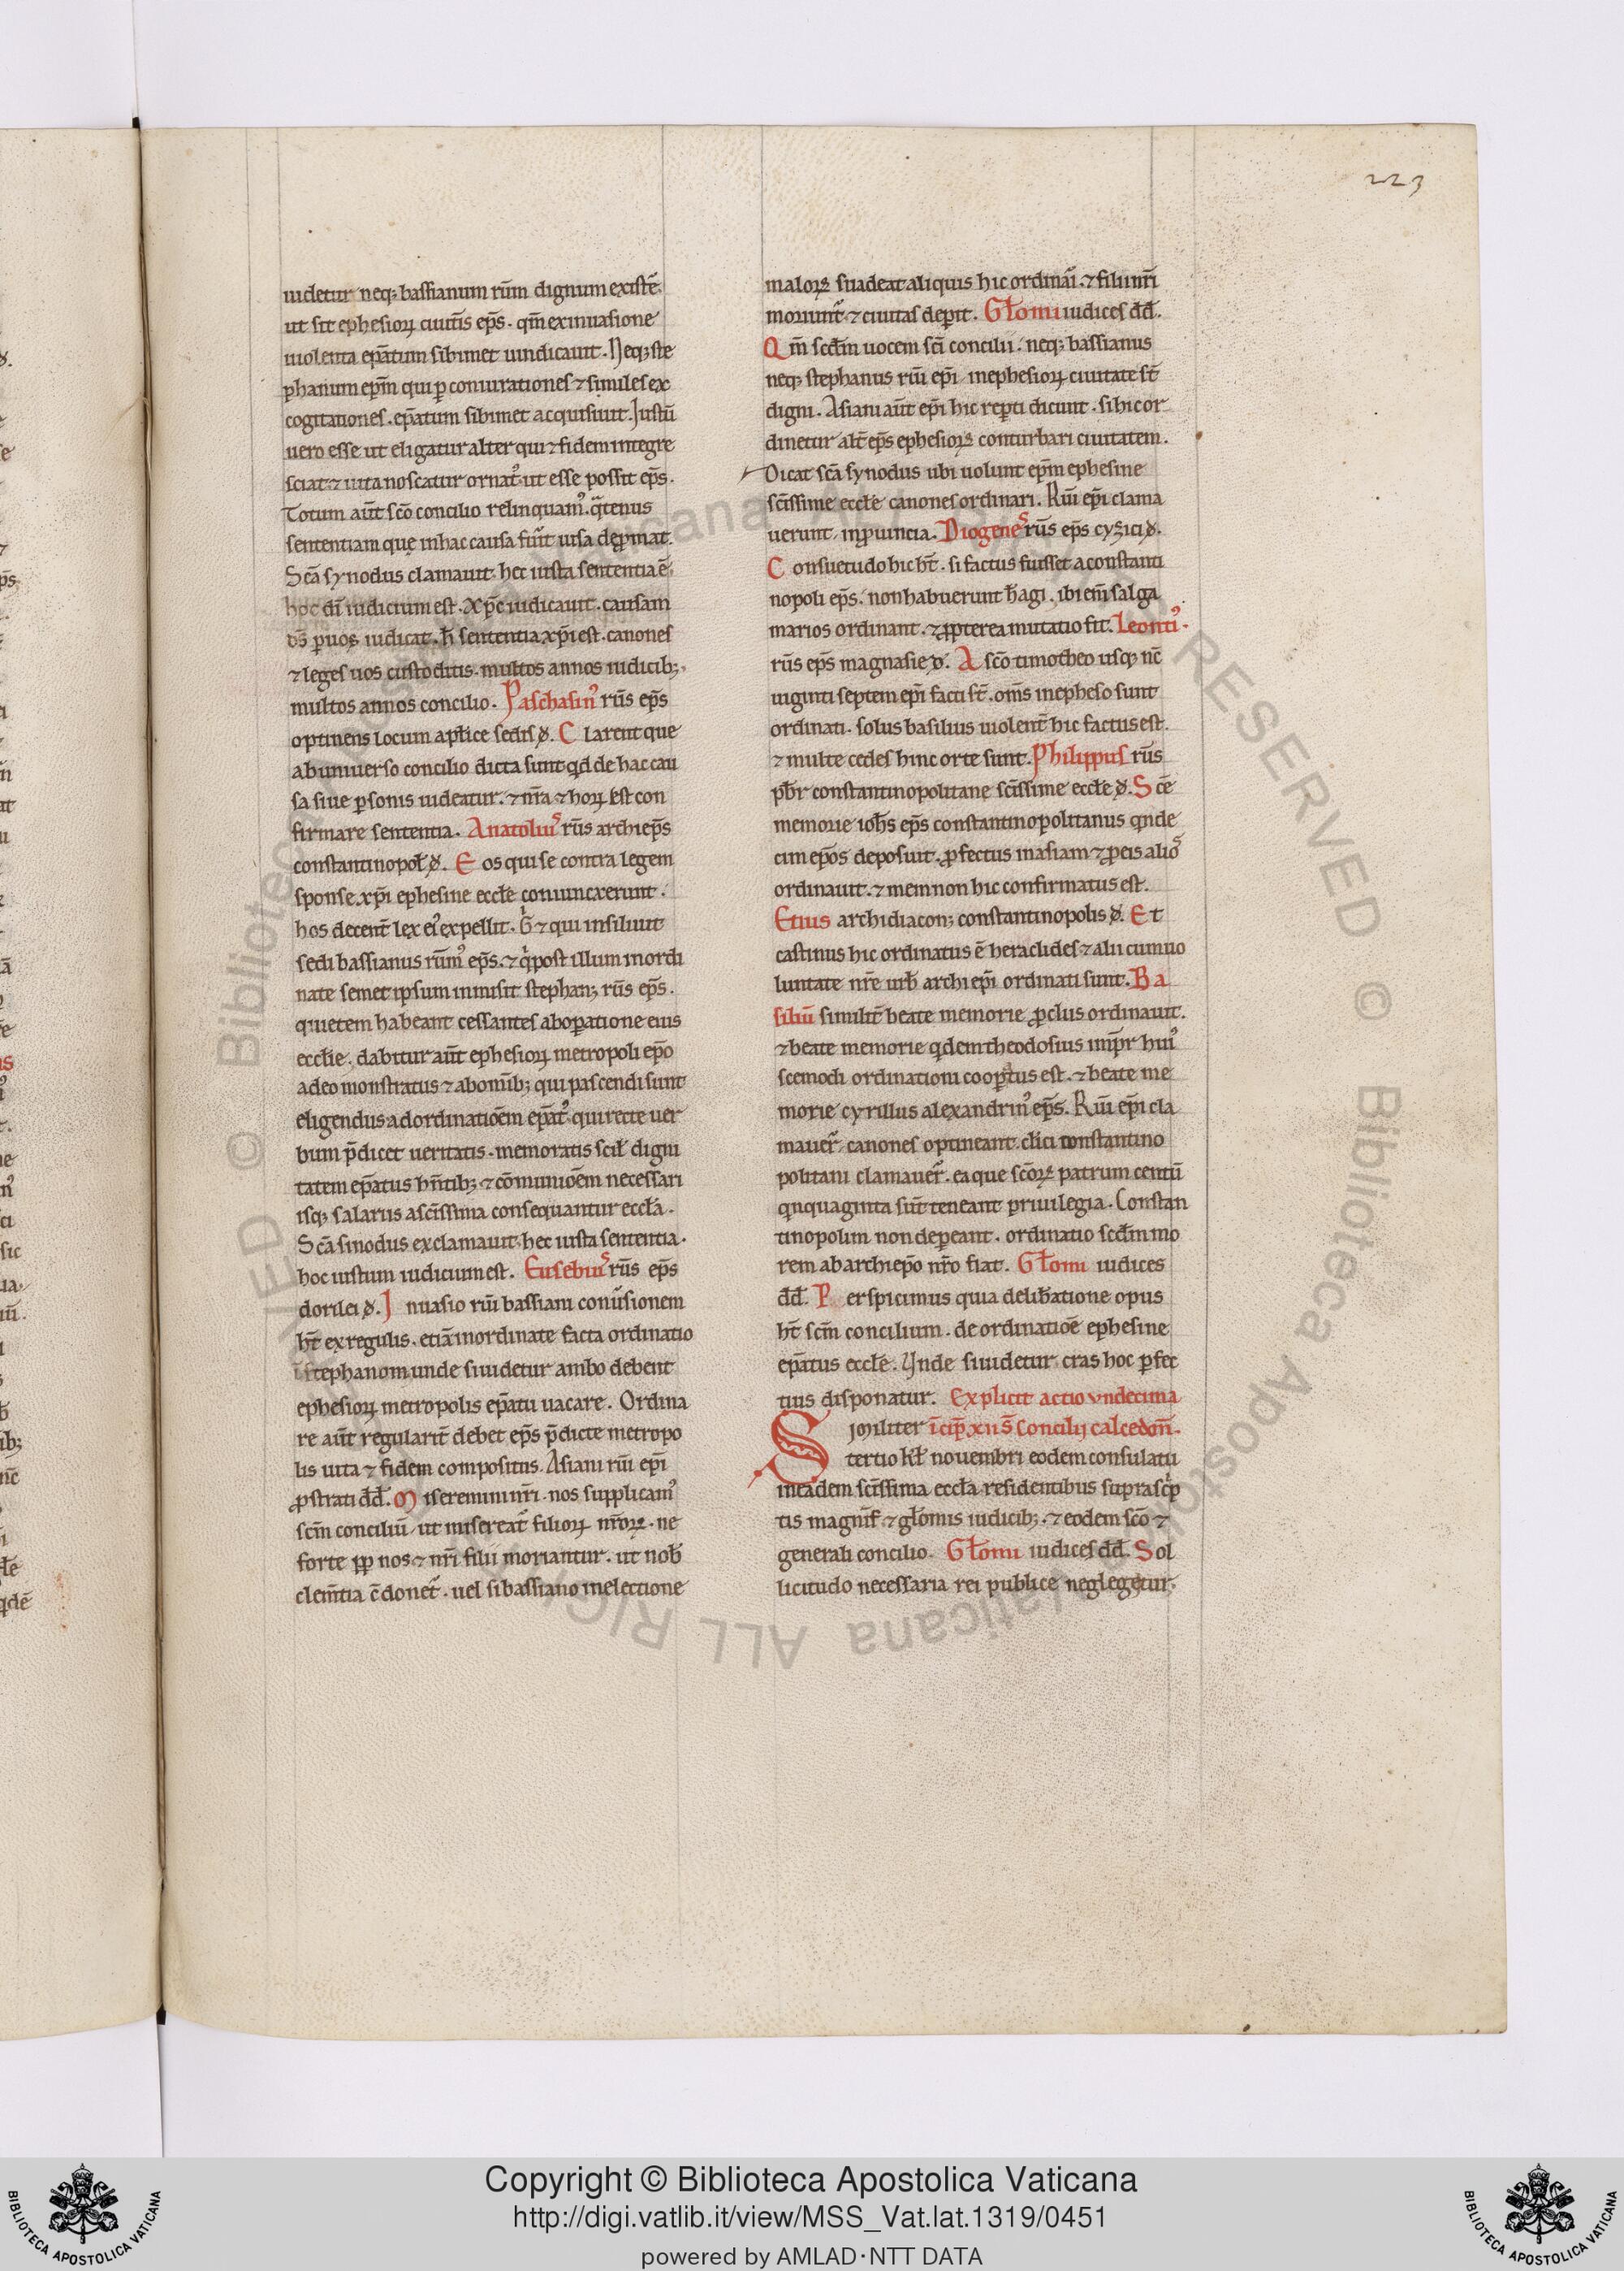 223
uidetur neq; bassianum rūm dignum existē.
ut sit ephesioꝝ ciuit̄s ep̄s. qm̄ ex inuasione
uiolenta ep̄atum sibimet uindicauit. Neq; ste
phanum ep̄m qui ꝑ coniurationes ⁊ similes ex
cogitationes. ep̄atum sibimet acquisiuit. Iustū
uero esse ut eligatur alter qui ⁊ fidem integre
sciat ⁊ uita noscatur ornatꝰ ut esse possit ep̄s.
Totum aūt sc̄o concilio relinquamꝰ. q̄tenus
sententiam que in hac causa fūit uisa deꝓmat.
Sc̄a synodus clamauit. hec iusta sententia ē.
hoc dī iudicium est. xp̄c iudicauit. causam
ds̄ ꝑ uos iudicat. h̄ sententia xp̄i est. canones
⁊ leges uos custoditis. multos annos iudicib;.
multos annos concilio. Paschasinꝰ rūs ep̄s
optinens locum apl̄ice sedis đ. Clarent que
ab uniuerso concilio dicta sunt qd̄ de hac cau
sa siue ꝑsonis uideatur. ⁊ nr̄a ⁊ hoꝝ est con
firmare sententia. Anatoliuˢ rūs archiep̄s
constantinopol̄ đ. Eos qui se contra legem
sponse xp̄i ephesine eccl̄e coniunxerunt.
hos decent̄ lex eiꝰ expellit. Gͥ ⁊ qui insiliuit
sedi bassianus rūmꝰ ep̄s. ⁊ qͥ post illum inordi
nate semet ipsum inmisit stephan; rūs ep̄s.
quietem habeant cessantes ab oꝑatione eius
eccl̄ie. dabitur aūt ephesioꝝ metropoli ep̄o
a deo monstratus ⁊ ab om̄ib; qui pascendi sunt
eligendus ad ordinatiōem ep̄atꝰ qui recte uer
bum p̄dicet ueritatis. memoratis scil̄ digni
tatem ep̄atus hn̄tib; ⁊ cōmuniōem necessari
isq; salariis a sc̄issima consequantur eccl̄a.
Sc̄a sinodus exclamauit. hec iusta sententia.
hoc iustum iudicium est. Eusebiuˢ rūs ep̄s
dorilei đ. Inuasio rūi bassiani conūsionem
ht̄ ex regulis. etiā inordinate facta ordinatio
ī stephanom unde si uidetur ambo debent
ephesioꝝ metropolis ep̄atu uacare. Ordina
re aūt regularit̄ debet ep̄s p̄dicte metropo
lis uita ⁊ fidem compositus. Asiani rūi ep̄i
ꝓstrati dd̄. Miseremini nr̄i. nos supplicamꝰ
scm̄ conciliū. ut misereat̄ filioꝝ nr̄oꝝ. ne
forte ꝓp nos ⁊ nr̄i filii moriantur. ut nob̄
clem̄tia c̄donet̄. uel si bassiano in electione
maloꝝ suadeat aliquis hic ordinai͂. ⁊ filii nr̄i
moriunt̄ ⁊ ciuitas deꝑit. Gl̄omi iudices dd̄.
Qm̄ scd̄m uocem sc̄i concilii. neq; bassianus
neq; stephanus rūi ep̄i in ephesioꝝ ciuitate st̄
digni. Asiani aūt ep̄i hic reꝑti dicunt. si hic or
dinetur alt̄ ep̄s ephesioꝝ conturbari ciuitatem.
Dicat sc̄a synodus ubi uolunt ep̄m ephesine
sc̄issime eccl̄e canones ordinari. Rūi ep̄i clama
uerunt. in ꝓuincia. Diogeneˢ rūs ep̄s cyzici đ.
Consuetudo hic ht̄. si factus fuisset a constanti
nopoli ep̄s. non habuerunt h̄ agi. ibi em̄ salga
marios ordinant. ⁊ ꝓpterea mutatio fit. Leontiꝰ.
rūs ep̄s magnasie đ. A sc̄o timotheo usq; nc̄
uiginti septem ep̄i facti st̄. om̄s in epheso sunt
ordinati. solus basilius uiolent̄ hic factus est.
⁊ multe cedes hinc orte sunt. Philippus rūs
pb̄r constantinopolitane sc̄issime eccl̄e đ. Sc̄e
memorie ioh̄s ep̄s constantinopolitanus qͥnde
cim ep̄os deposuit. ꝓfectus in asiam ⁊ ꝓ eis alioˢ
ordinauit. ⁊ memnon hic confirmatus est.
Etius archidiacon; constantinopolis đ. Et
castinus hic ordinatus ē heraclides ⁊ alii cum uo
luntate nr̄e urb̄ archiep̄i ordinati sunt. Ba
siliū similit̄ beate memorie ꝓclus ordinauit.
⁊ beate memorie qͥdem theodosius imp̄r huiꝰ
scemodi ordinationi cooꝑatus est. ⁊ beate me
morie cyrillus alexandrinꝰ ep̄s. Rūi ep̄i cla
mauer̄. canones optineant. cl̄ici constantino
politani clamauer̄. ea que sc̄oꝝ patrum centū
qͥnquaginta sūt teneant priuilegia. Constan
tinopolim non deꝑeant. ordinatio scd̄m mo
rem ab archiep̄o nr̄o fiat. Gl̄omi iudices
dd̄. Perspicimus quia delib̄atione opus
ht̄ scm̄ concilium. de ordinatiōe ephesine
ep̄atus eccl̄e. Unde si uidetur cras hoc ꝑfec
tius disponatur. Explicit actio vndecima
Similiter īcip̄ xii s̄ Concilij calcedoñ.
tertio kl̄ nouembri eodem consulatu
in eadem sc̄issima eccl̄a residentibus suprascͥp
tis magnif̄ ⁊ gl̄omis iudicib; ⁊ eodem sc̄o ⁊
generali concilio. Gl̄omi iudices dd̄. Sol
licitudo necessaria rei publice neglegetur.
Copyright © Biblioteca Apostolica Vaticana
http://digi.vatlib.it/view/MSS_Vat.lat.1319/0451
powered by AMLAD·NTT DATA
BIBLIOTECA APOSTOLICA VATICANA
BIBLIOTECA APOSTOLICA VATICANA